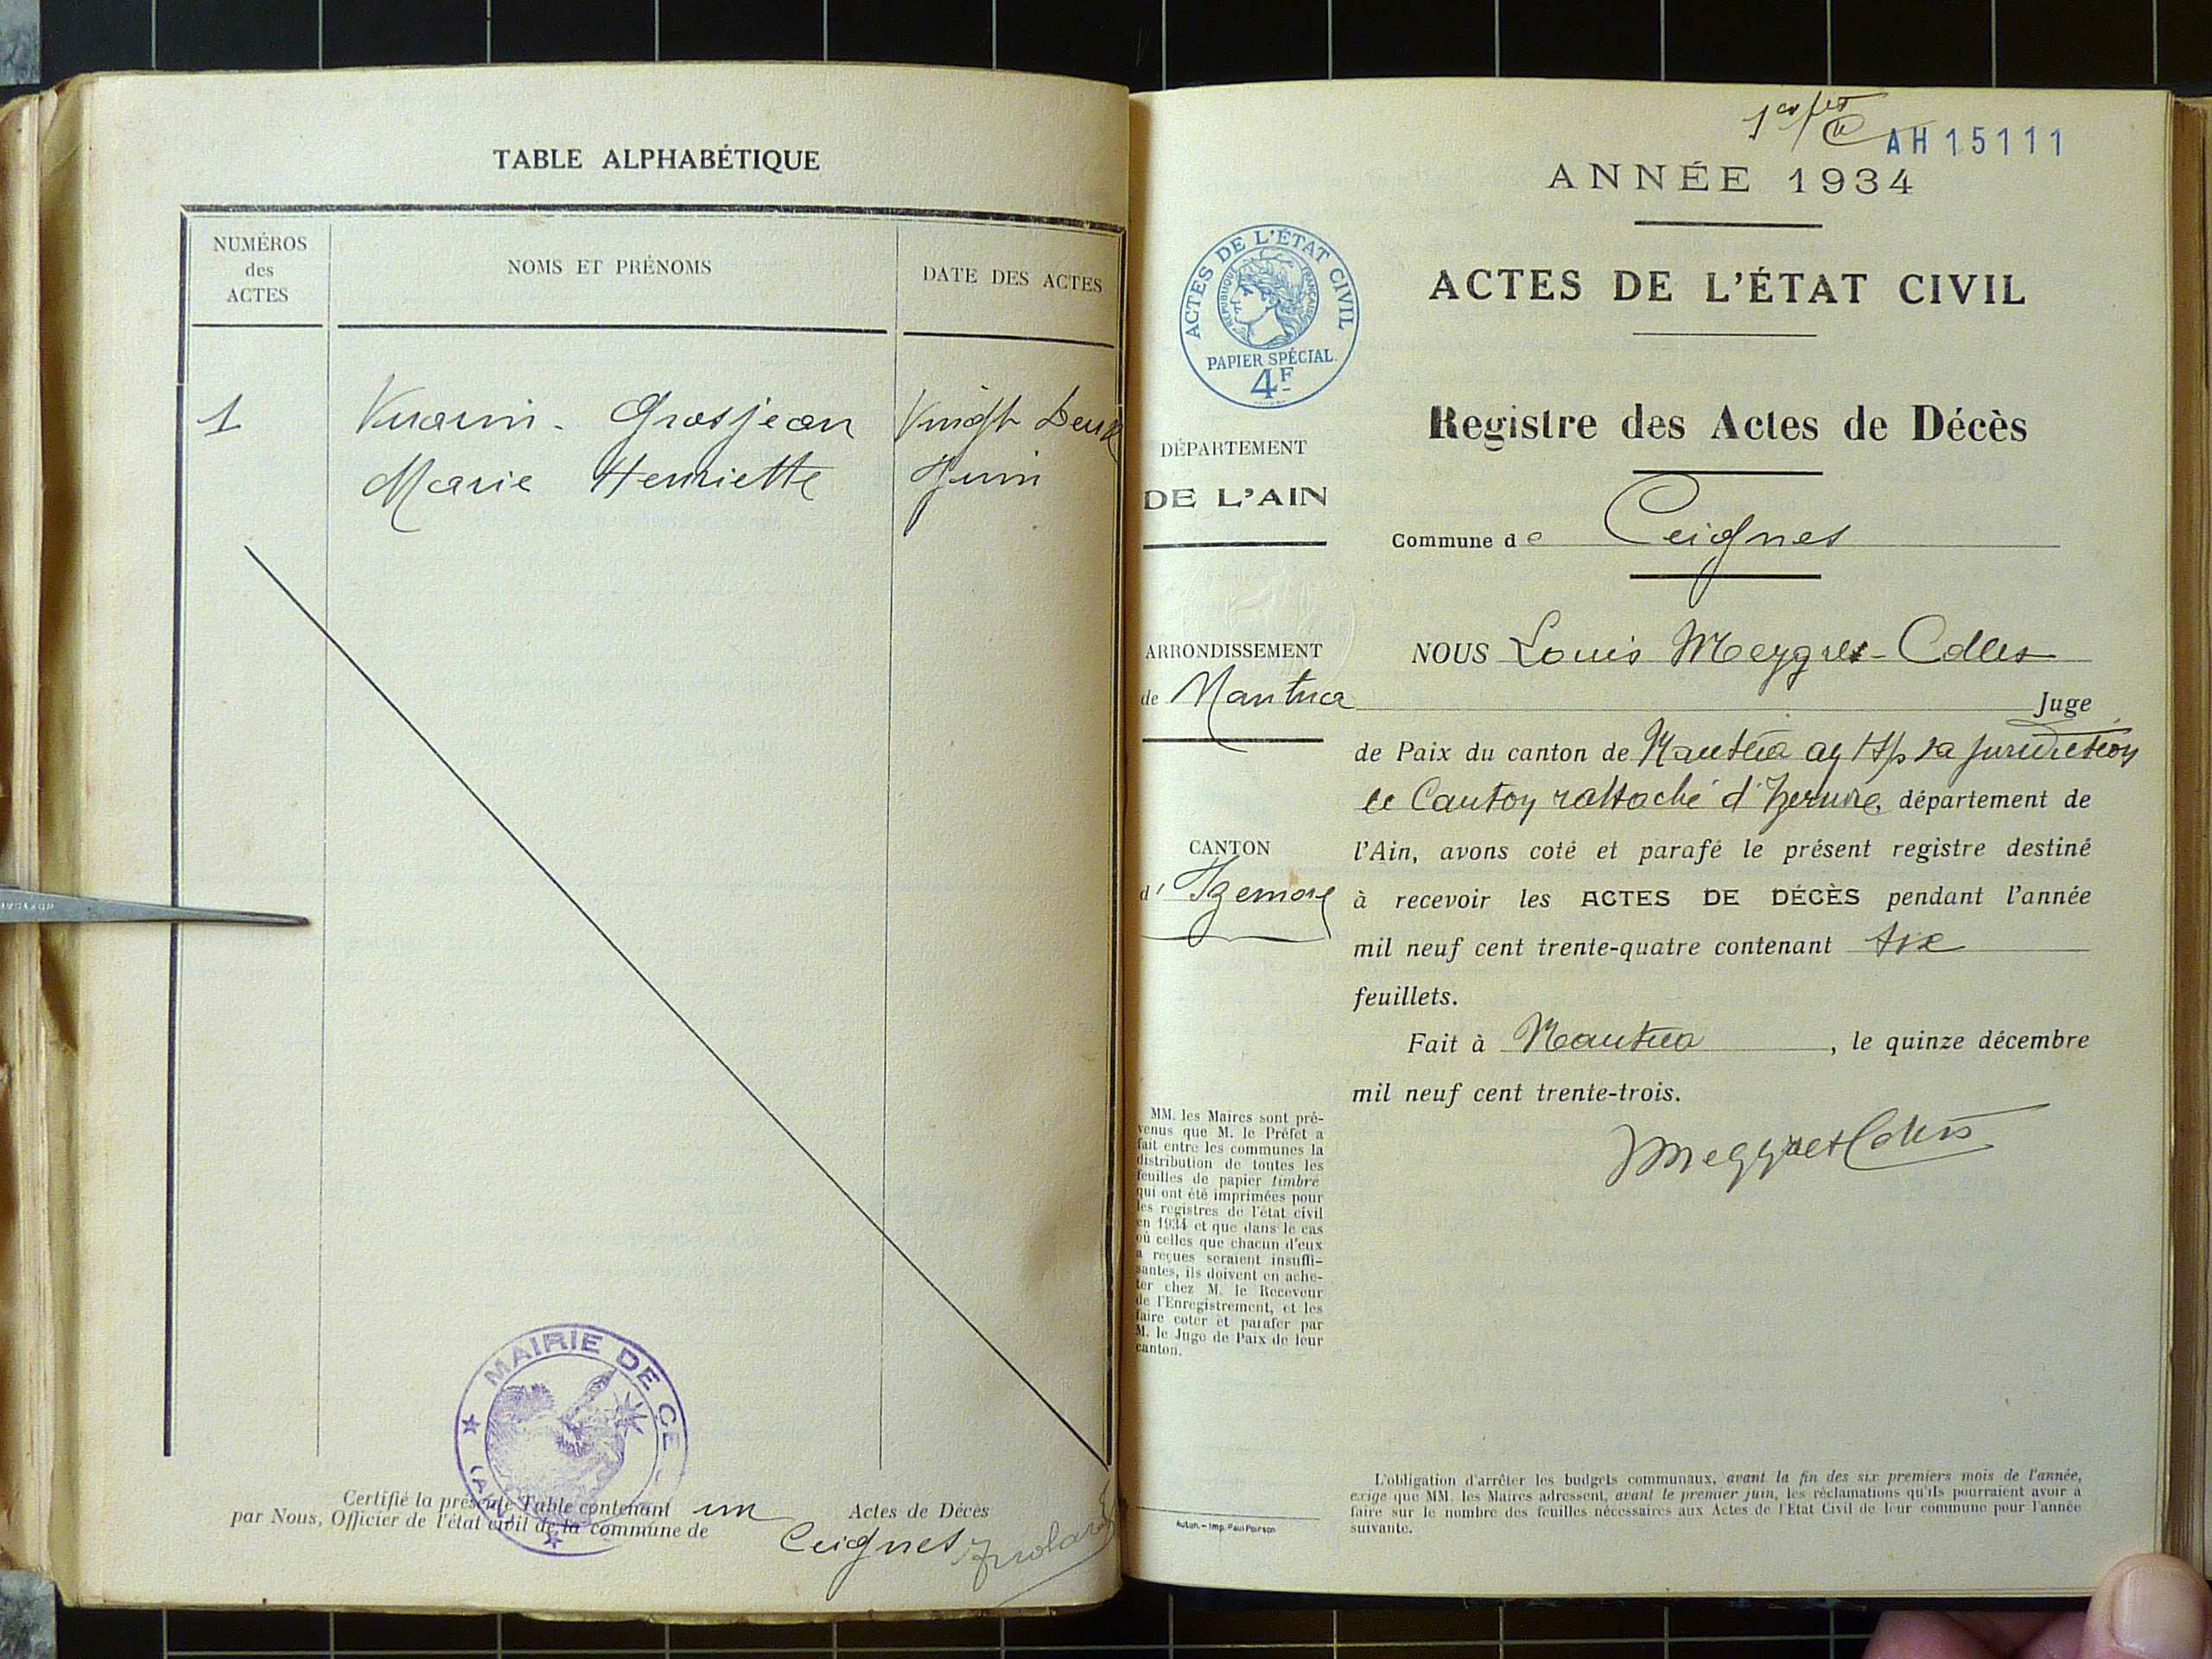 TABLE ALPHABÉTIQUE
NUMÉROS
des
ACTES
NOMS ET PRÉNOMS
DATE DES ACTES
1
Vuarin - Grosjean
Vingt Deux
Marie Henriette
Juin
MAIRIE DE CE
Certifié la présente Table contenant un Actes de Décès
par Nous, Officier de l'état civil de la commune de
Ceignes
AH 15111
ANNÉE 1934
ACTES DE L'ÉTAT CIVIL
RÉPUBLIQUE FRANÇAISE
PAPIER SPÉCIAL
4F
ACTES DE L'ÉTAT CIVIL
Registre des Actes de Décès
DÉPARTEMENT
DE L'AIN
Commune de Ceignes
ARRONDISSEMENT
de Nantua
CANTON
d'Izernore
MM. les Maires sont pré-
venus que M. le Préfet a
fait entre les communes la
distribution de toutes les
feuilles de papier timbré
qui ont été imprimées pour
les registres de l'état civil
en 1934 et que dans le cas
où celles que chacun d'eux
a reçues seraient insuffi-
santes, ils doivent en ache-
ter chez M. le Receveur
de l'Enregistrement, et les
faire coter et parafer par
M. le Juge de Paix de leur
canton.
Autun. - Imp. Paul Poirson
NOUS Louis
Juge
de Paix du canton de Nantua ayt ss sa juridiction
le Canton rattaché d'Izernore, département de
l'Ain, avons coté et parafé le présent registre destiné
à recevoir les ACTES DE DÉCÈS pendant l'année
mil neuf cent trente-quatre contenant six
feuillets.
Fait à Nantua, le quinze décembre
mil neuf cent trente-trois.
L'obligation d'arrêter les budgets communaux, avant la fin des six premiers mois de l'année,
exige que MM. les Maires adressent, avant le premier juin, les réclamations qu'ils pourraient avoir à
faire sur le nombre des feuilles nécessaires aux Actes de l'Etat Civil de leur commune pour l'année
suivante.